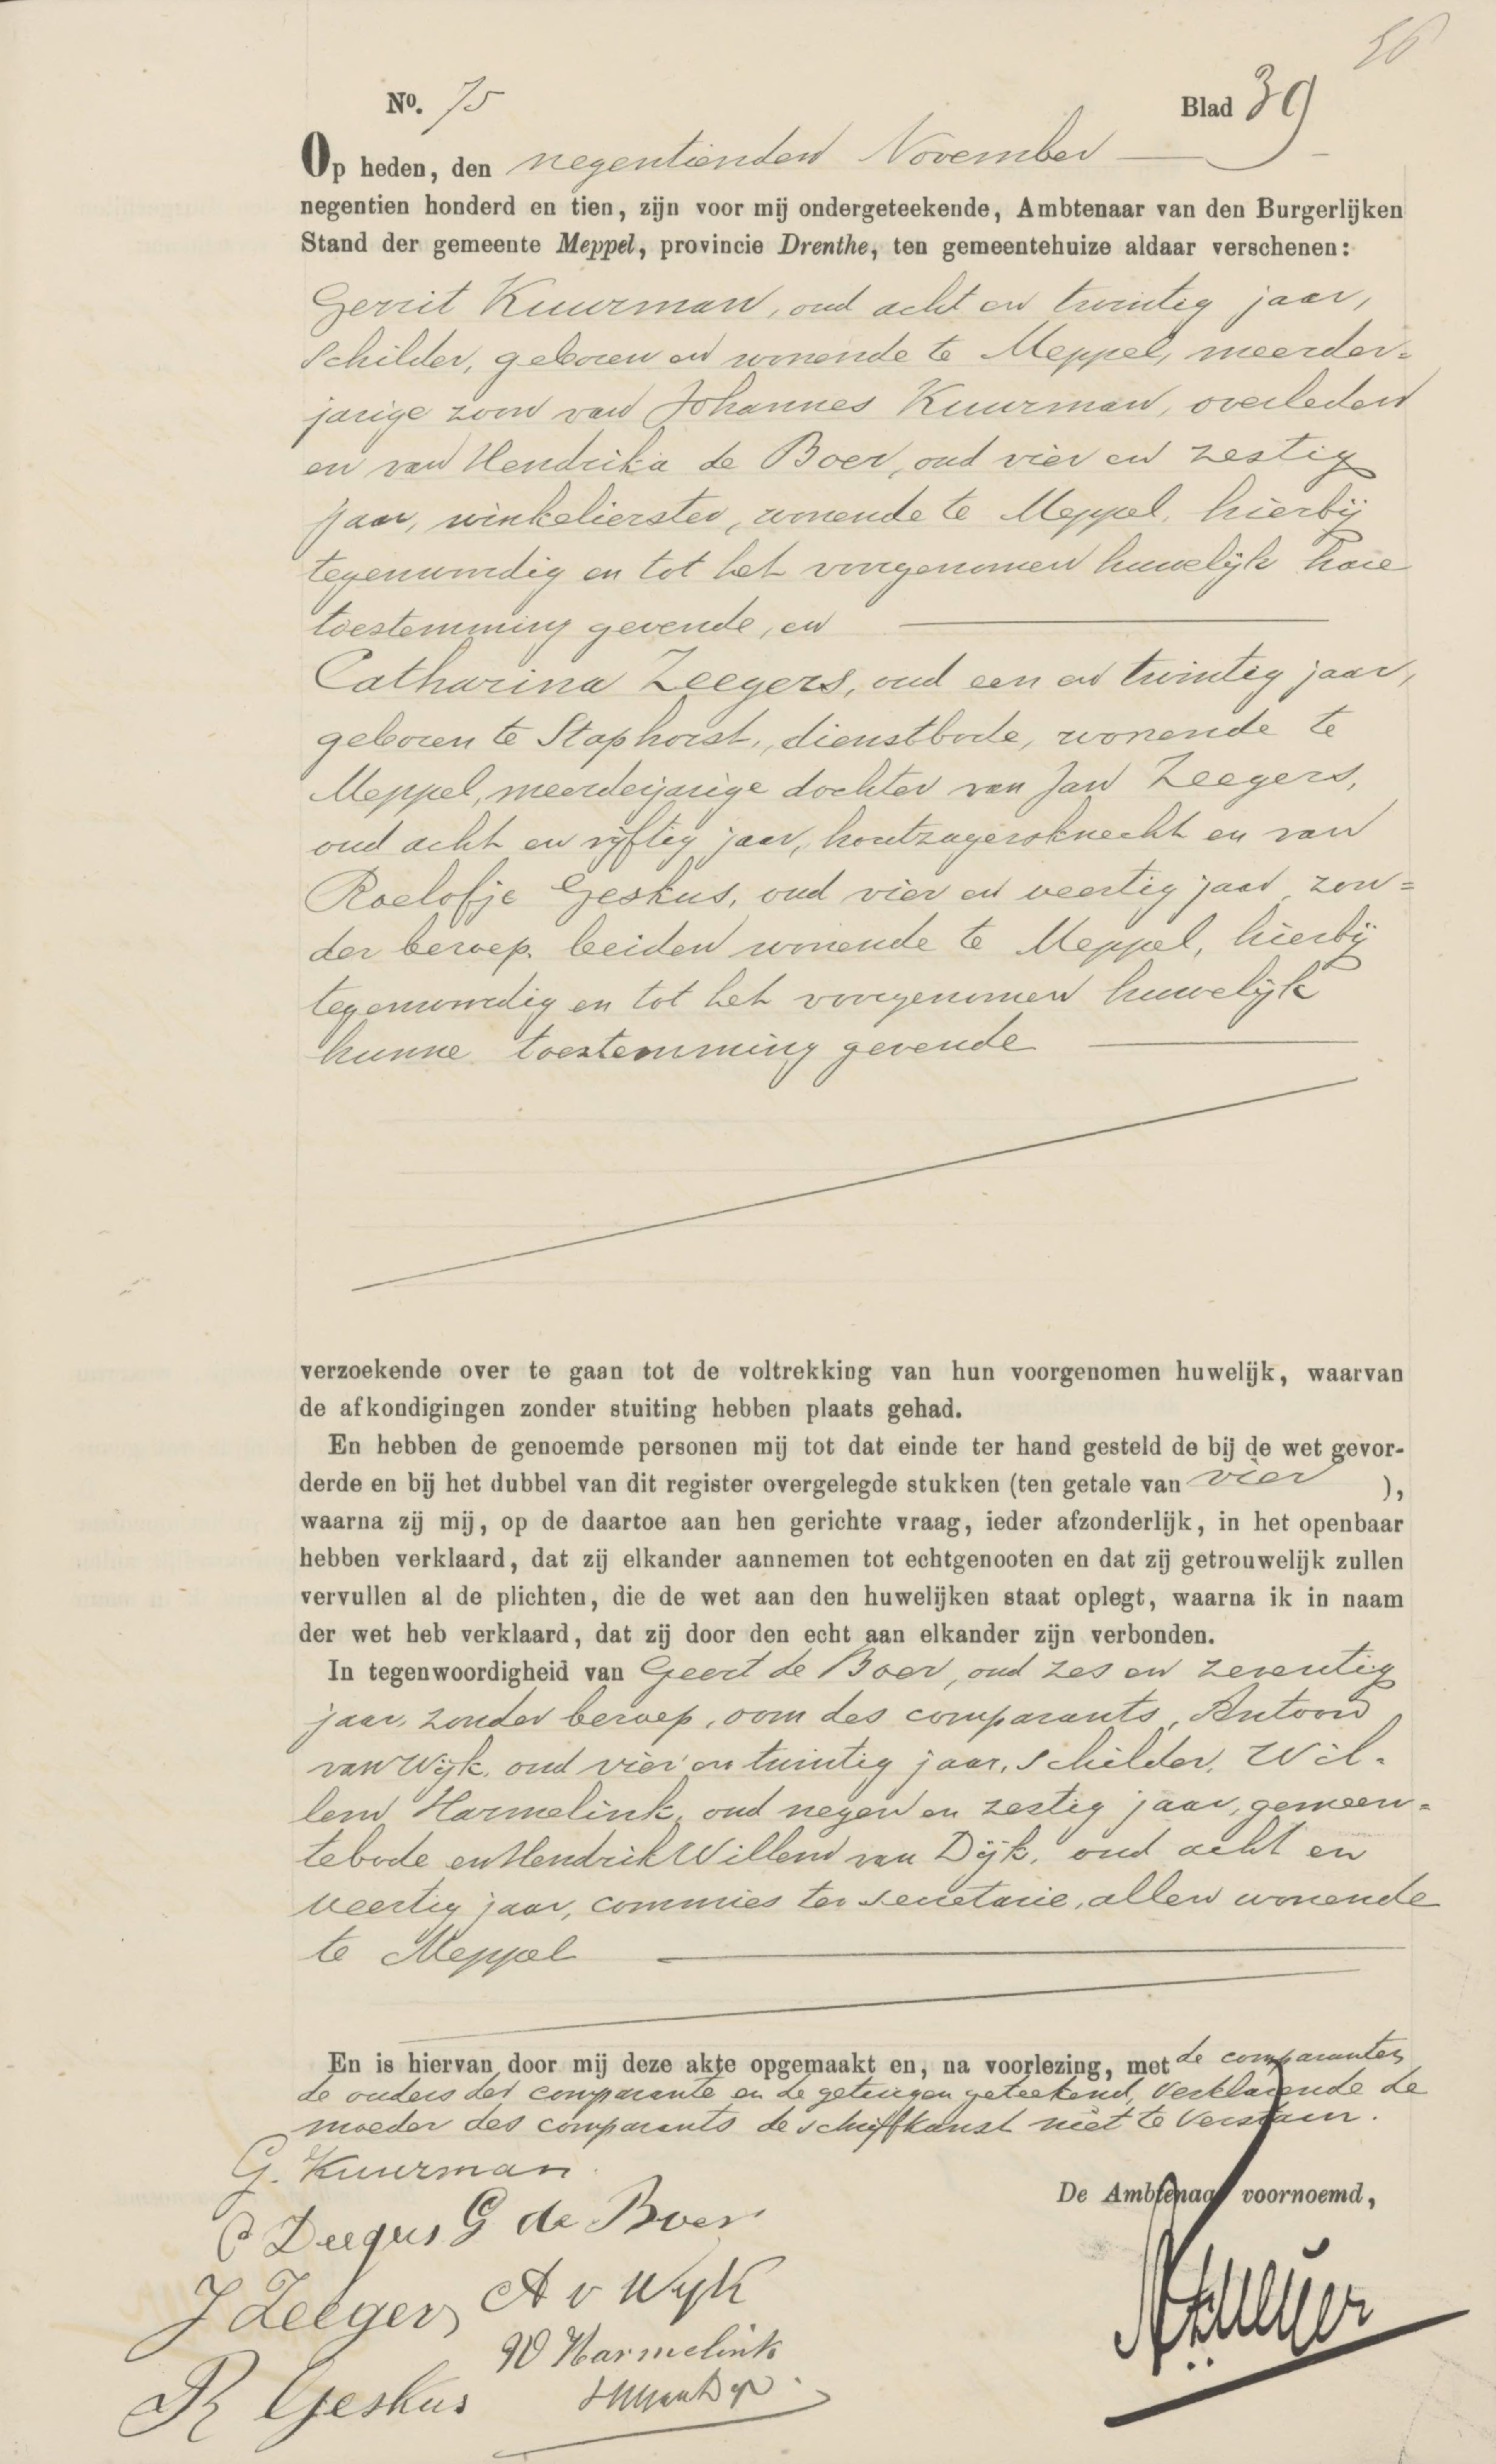 56
No. 75 Blad 39
Op heden, den negentienden November
negentien honderd en tien, zijn voor mij ondergeteekende, Ambtenaar van den Burgerlijken
Stand der gemeente Meppel, provincie Drenthe, ten gemeentehuize aldaar verschenen:
Gerrit Kuurman, oud acht en twintig jaar,
schilder, geboren en wonende te Meppel, meerder=
jarige zoon van Johannes Kuurman, overleden
en van Hendrika de Boer, oud vier en zestig
jaar, winkelierster, wonende te Meppel, hierbij
tegenwoordig en tot het voorgenomen huwelijk hare
toestemming gevende, en
Catharina Zeegers, oud een en twintig jaar,
geboren te Staphorst, dienstbode, wonende te
Meppel, meerderjarige dochter van Jan Zeegers,
oud acht en vijftig jaar, houtzagersknecht en van
Roelofje Geskus, oud vier en veertig jaar, zon=
der beroep, beiden wonende te Meppel, hierbij
tegenwoordig en tot het voorgenomen huwelijk
hunne toestemming gevende
verzoekende over te gaan tot de voltrekking van hun voorgenomen huwelijk, waarvan
de afkondigingen zonder stuiting hebben plaats gehad.
En hebben de genoemde personen mij tot dat einde ter hand gesteld de bij de wet gevor-
derde en bij het dubbel van dit register overgelegde stukken (ten getale van vier ),
waarna zij mij, op de daartoe aan hen gerichte vraag, ieder afzonderlijk, in het openbaar
hebben verklaard, dat zij elkander aannemen tot echtgenooten en dat zij getrouwelijk zullen
vervullen al de plichten, die de wet aan den huwelijken staat oplegt, waarna ik in naam
der wet heb verklaard, dat zij door den echt aan elkander zijn verbonden.
In tegenwoordigheid van Geert de Boer, oud zes en zeventig
jaar, zonder beroep, oom des comparants, Antoon
van Wijk, oud vier en twintig jaar, schilder, Wil=
lem Harmelink, oud negen en zestig jaar, gemeen=
tebode en Hendrik Willem van Dijk, oud acht en
veertig jaar, commies ter secretarie, allen wonende
te Meppel
En is hiervan door mij deze akte opgemaakt en, na voorlezing, met de comparanten
de ouders der comparante en de getuigen geteekend, verklarende de
moeder des comparants de schrijfkunst niet te verstaan.
G. Kuurman
De Ambtenaar voornoemd,
C Zeegers G de Boer
J Zeegers A v Wyk
W Harmelink
R Geskus HWvanDijk